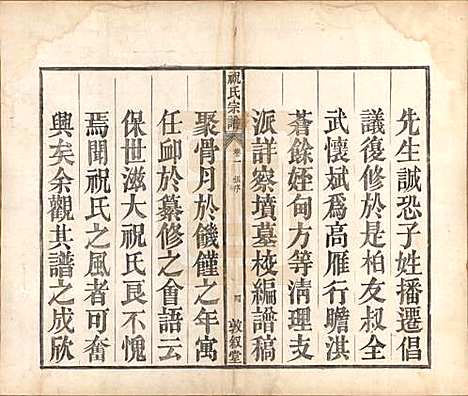 先生誠恐子姓播遷倡
議復修於是柏友叔全
武懷斌爲高雁行瞻淇
蒼餘姪甸方等淸理支
派詳察墳墓校編譜稿
祝氏宗譜
卷一
四
敦叙堂
聚骨月於饑饉之年寓
任卹於纂修之會語云
保世滋大祝氏良不愧
焉聞祝氏之風者可奮
興矣余觀其譜之成欣